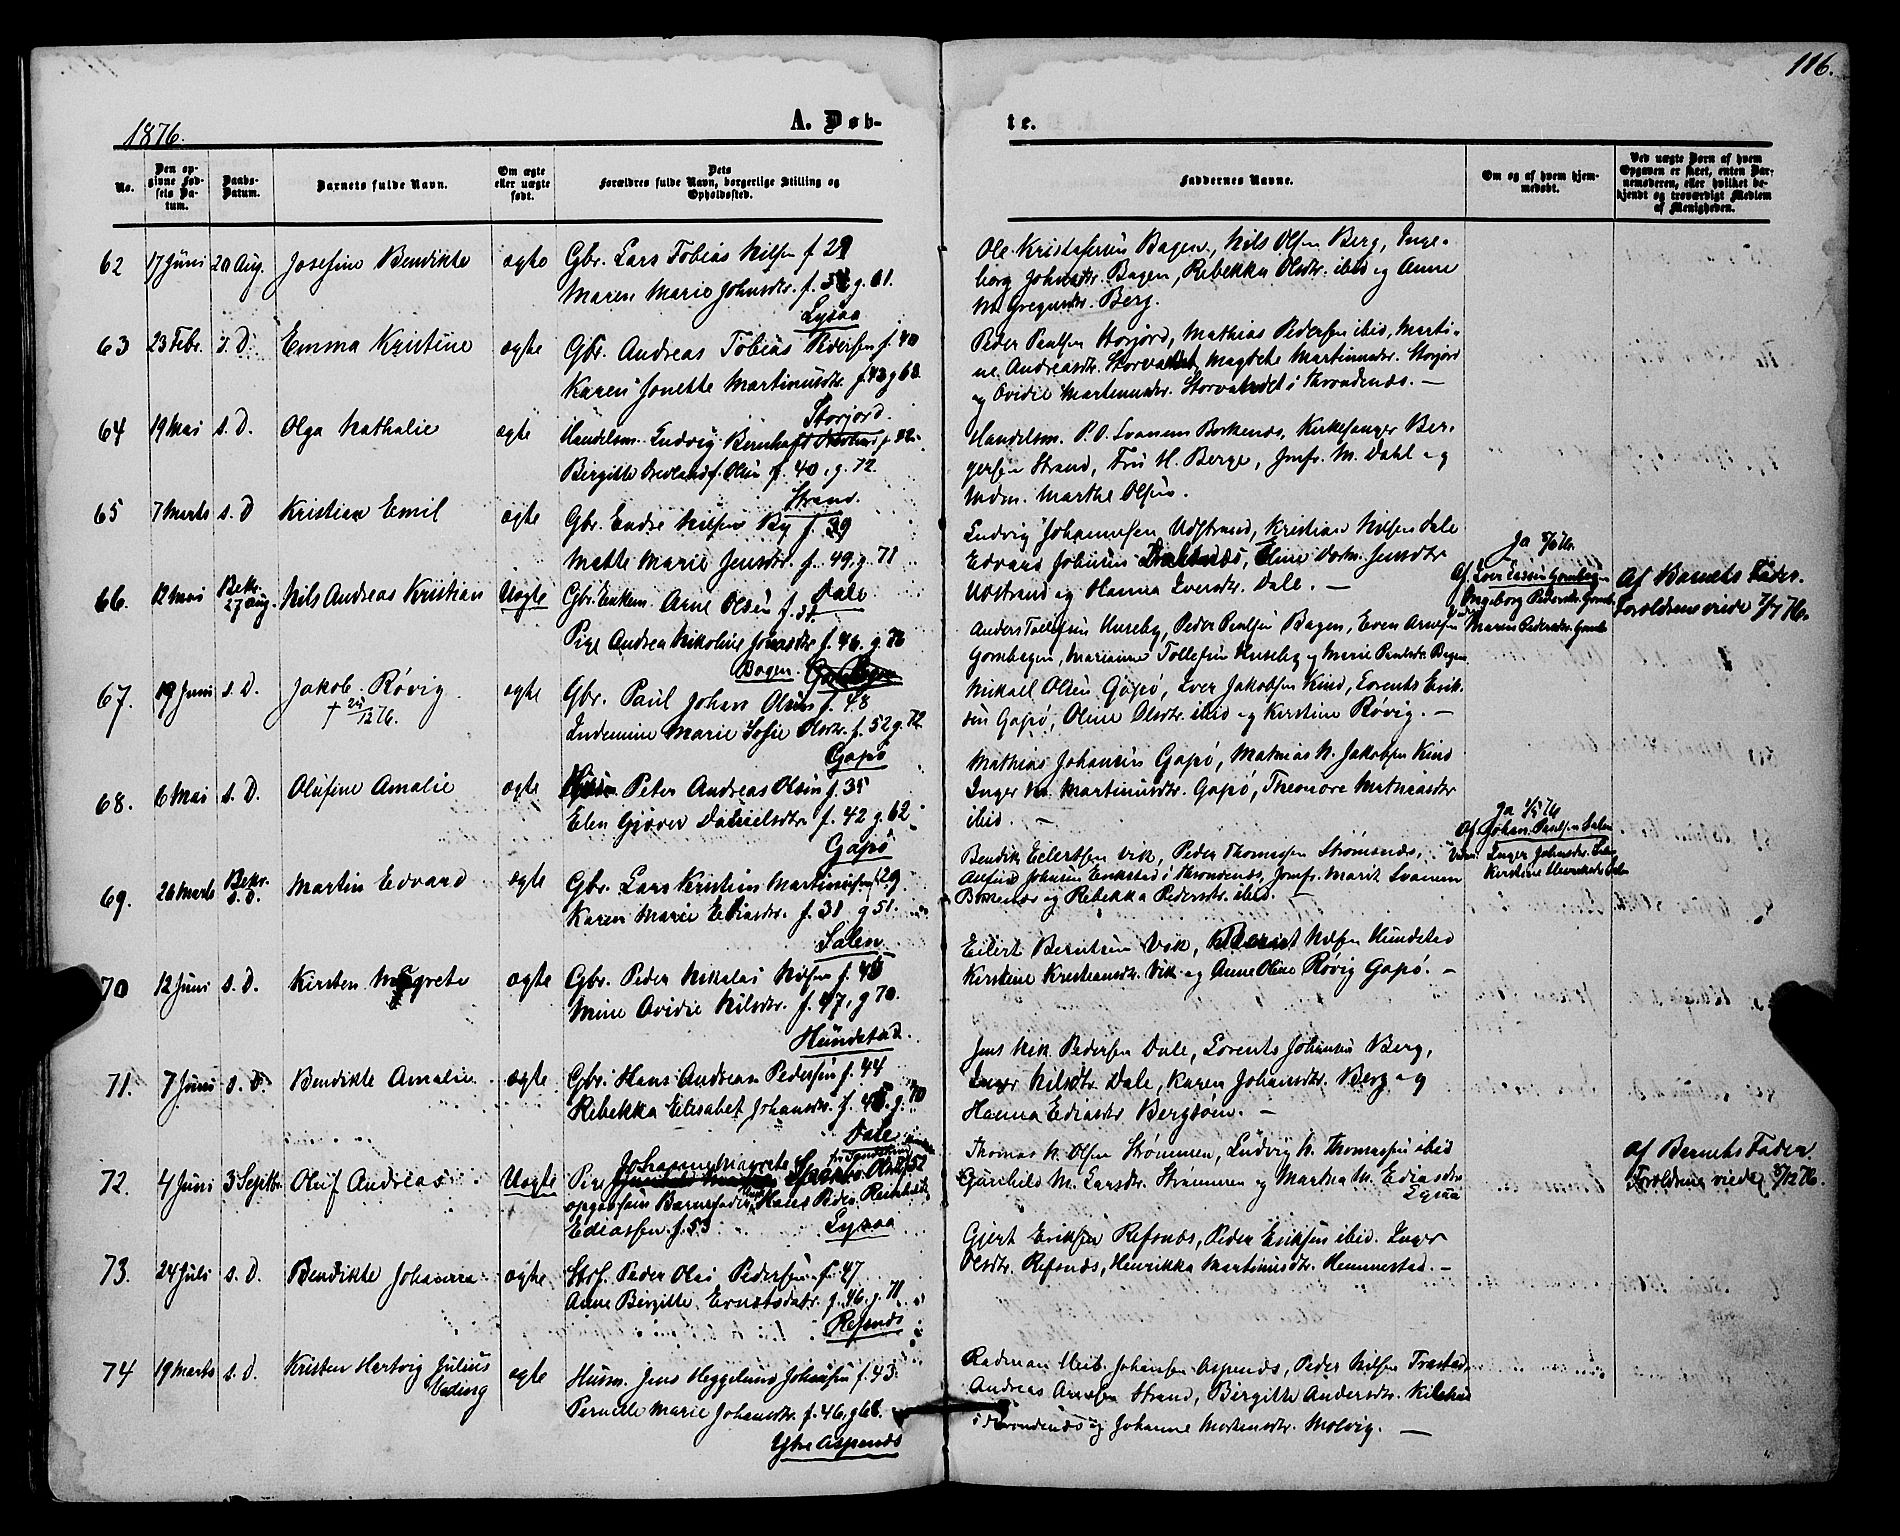 116.
1876.
A. Døb-
te.
No.
Den op-
givne Fød-
sels Da-
tum.
Daabs-
Datum.
Barnets fulde Navn.
Om ægte
eller uægte
født.
Dets
Forældres fulde Navn, borgerlige Stilling og
Opholdssted.
Faddernes Navne.
Om og af hvem hjem-
medøbt.
Ved uægte Børn af hvem
Opgaven er skeet, enten Bar-
nemoderen, eller hvilket be-
kjendt og troværdigt Medlem
af Menigheden.
62 17 Juni 20 Aug. Josefine Bendikte ægte Gbr. Lars Tobias Nilsen f 29
Maren Marie Johnsdtr. f. g. 61.
Lysaa
Ole Kristofersen Bagen, Nils Olsen Berg, Inge-
borg Johnsdtr. Bagen, Rebekka Olsdtr. ibid og Anne
M. Gregersdtr. Berg.
63 23 Febr. s. D. Emma Kristine ægte Gbr. Andreas Tobias Pedersen f. 40
Karen Jonette Martinusdtr. f. 43 g 68.
Storjord.
Peder Paulsen Storjord, Mathias Pedersen ibid, Marti-
ne Andreasdtr. Storvatnet, Magdele Martinusdtr. Storjord
og Ovidie Martinusdtr. Storvatnet i Throndenæs. —
64 19 Mai s. D. Olga Nathalie ægte Handelsm. Ludvig Bernhoft f. 32.
Birgitte f. Olsen f. 40, g. 72
Strand.
Handelsm. P. O. Svanem Borkenæs, Kirkesanger Ber-
gersen Strand, Fru H. Berge, Jomfr. M. Dahl og
Mdm. Marthe Olsen.
65 7 Marts s. D Kristian Emil ægte Gbr. Endre Nilsen By f. 39
Mette Marie Jensdtr. f. 49, g. 71
Dale
Ludvig Johannesen Udstrand, Kristian Nilsen Dale
Edvard Johnsen, Oline Jensdtr.
Udstrand og Hanna Iversdtr. Dale. —
66. 12 Mai Bekr. 27 Aug. Nils Andreas Kristian Uægte Gbr. Enkem. Arne Olsen f. 32
Pige Andrea Nikoline Jonasdtr. f. 46. g. 76
Bogen.
Anders Tollefsen Huseby, Peder Paulsen Bagen, Even Arnesen
Gombogen, Marianne Tollefsen Huseby og Marie Paulsdtr. Bagen
Ja 8/6 76.
Af Iver Gombogen
Ingeborg Pedersdtr. Gomb.
Maren Pedersdtr. Gomb.
Af Barnets Fader.
Forældrene viede 7/7 76.
67. 19 Juni s. D. Jakob Røvig
† 24/12 76.
ægte Gbr. Paul Johan Olsen f. 48
Indeanne Marie Sofie Olsdtr. f. 52 g. 72
Gapø
Mikael Olsen Gapø, Iver Jakobsen Kind, Lorents Erik-
sen Gapø, Oline Olsdtr. ibid og Kirstine Røvig. —
68. 6 Mai s. D. Olufine Amalie ægte Peter Andreas Olsen f. 35
Elen Gjører Danielsdtr. f. 42 g. 62
Gapø
Mathias Johansen Gapø, Mathias N. Jakobsen Kind
Inger M. Martinusdtr. Gapø, Theonore Mathiasdtr.
ibid. —
69. 26 Marts Bekr. s. D. Martin Edvard ægte Gbr. Lars Kristian Martinussen f 29.
Karen Marie Eliasdtr. f. 31 g 51.
Salen
Bendik Eilertsen Vik, Peder Thomassen Strømsnæs,
Johnsen Erikstad i Throndenæs, Jomfr. Marit Svanem
Borkenæs og Rebekka Pedersdtr. ibid. —
Ja 1/5 76
Af Johan Paulsen Salen
Vidn. Inger Johnsdtr. Salen
Kirstine Henriksdtr. Salen
70 12 Juni s. D. Kirsten Magrete ægte Gbr. Peder Nikolai Nilsen f. 45
Mine Ovidie Nilsdtr. f. 47, g 70.
Hundstad.
Eilert Berntsen Vik, Nilsen Hundstad
Kirstine Kristiansdtr. Vik og Anne Oline Røvig Gapø. —
71. 7 Juni s. D. Bendikte Amalie ægte Gbr. Hans Andreas Pedersen f. 44
Rebekka Elisabet Johansdtr. f. 45. g. 70
Dale
Jens Nik. Pedersen Dale, Lorents Johansen Berg,
Inger Nilsdtr. Dale, Karen Johansdtr. Berg og
Hanna Ediasdtr. Bergsom. —
72. 4 Juni 3 Septbr Oluf Andreas Uægte Pige Johanna Magreta Olsdtr f 52
opgiven Barnefader Hans Peder Reinholdt
Ediassen f. 53
Lysaa
Thomas N. Olsen Strømmen, Ludvig N. Thomassen ibid
Gunhild M. Larsdtr. Strømmen og Martha M. Ediasdtr.
Lysaa
Af Barnets Fader.
Forældrene viede 8/12 76.
73. 24 Juli s. D. Bendikte Johanna ægte Strf. Peder Olai Pedersen f. 47
Anne Birgitte Ernstsdatr. f. 46. g. 71
Refsnæs
Gjert Eriksen Refsnæs, Peder Eriksen ibid. Inger
Olsdtr. Refsnæs, Henrikka Martinusdtr. Hemmestad. —
74 19 Marts s. D. Kristen Hertvig Julius
Nading
ægte Husm. Jens Heggelund Johansen f. 43.
Pernelle Marie Johansdtr. f. 46. g 68.
Ytre Aspenæs
Radman Meib. Johansen Aspenæs, Peder Nilsen Trastad,
Andreas Arnesen Strand, Birgitte Andersdtr. Kilehus
i Throndenæs og Johanne Mortensdtr. Molvig. —